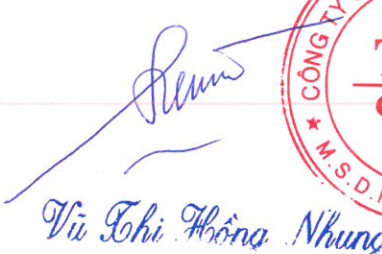 CÔNG TY
M.S.D.N
Vũ Thị Hồng Nhung